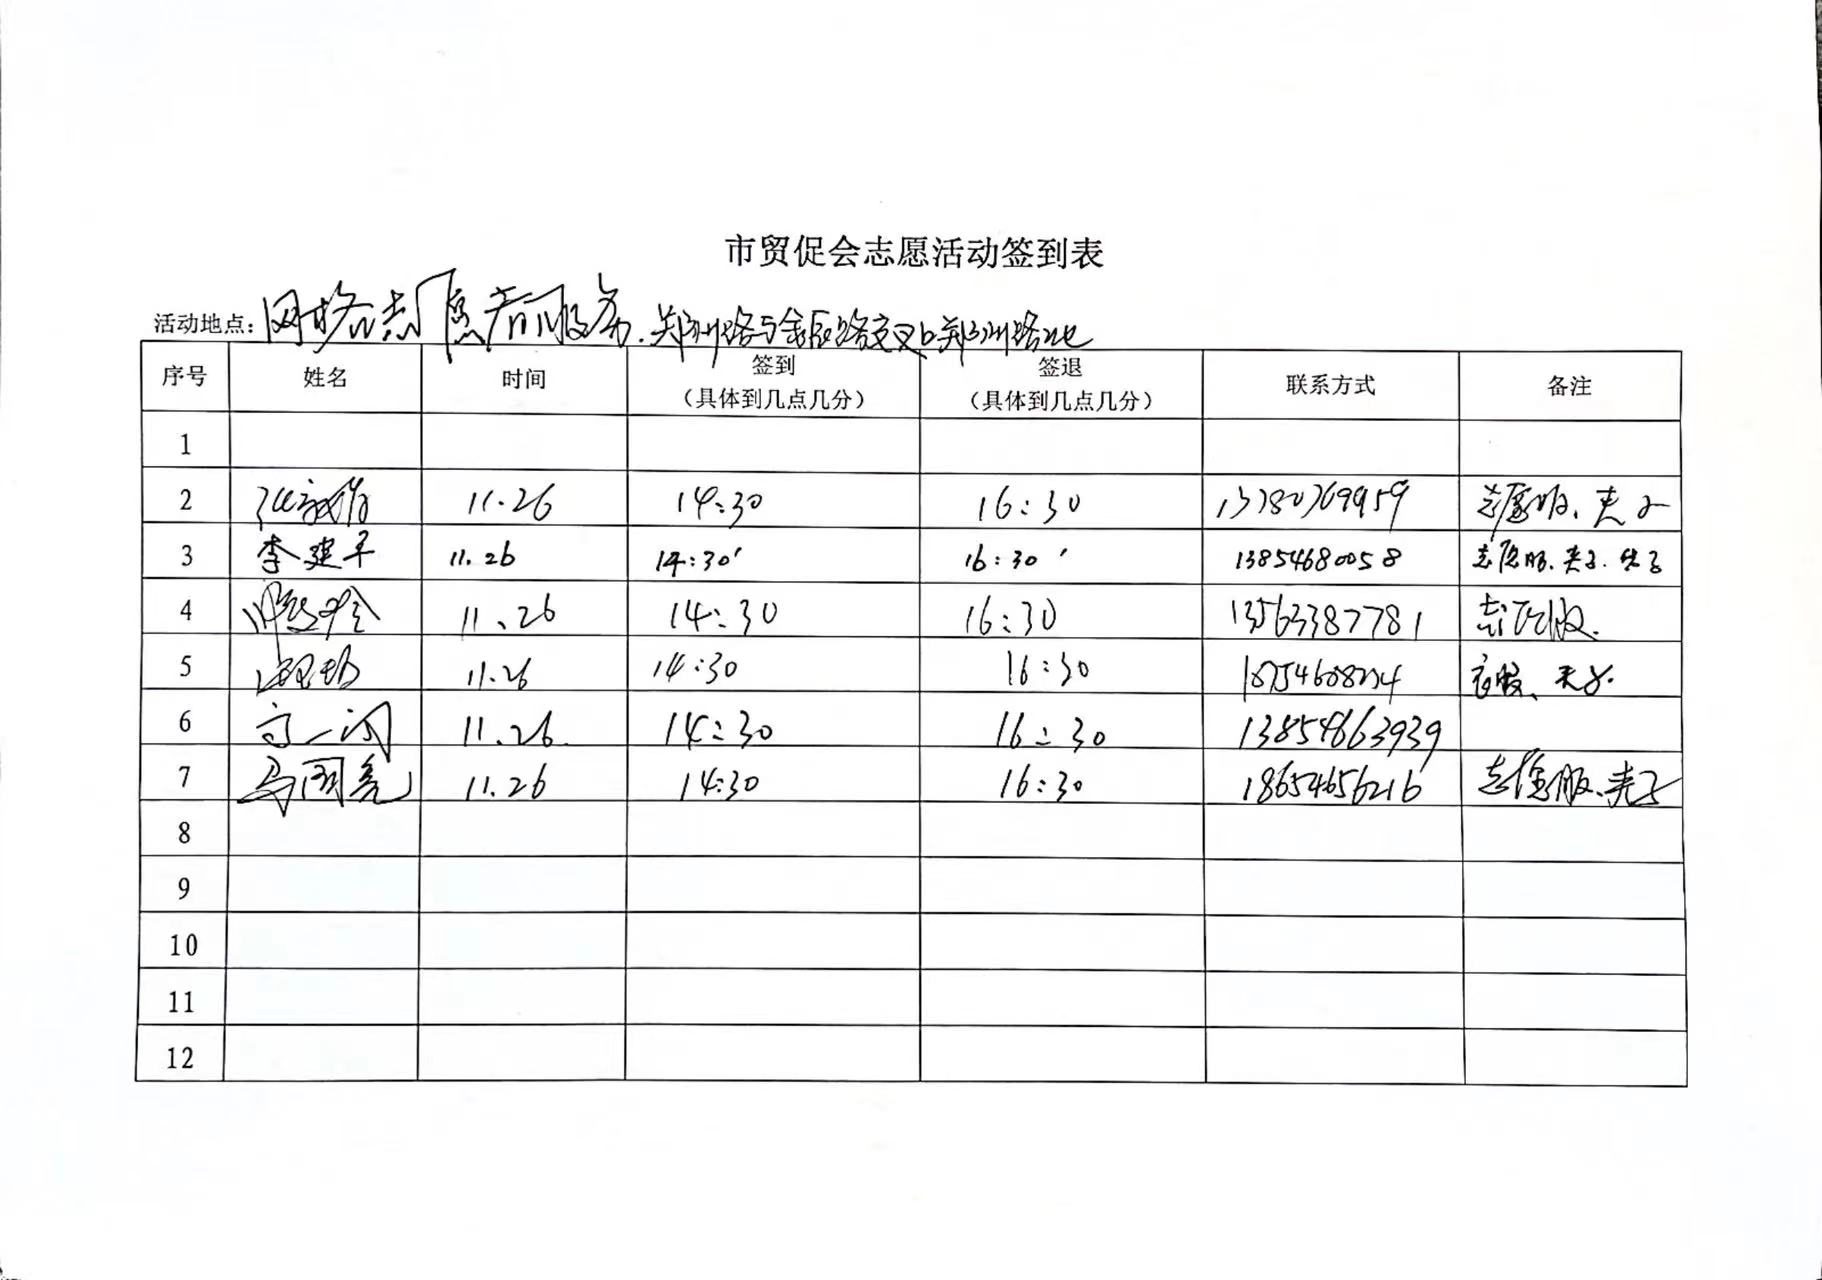 市贸促会志愿活动签到表
活动地点: 网格志愿者服务. 郑州路与金辰路交叉口郑州路北
序号 姓名 时间 签到(具体到几点几分) 签退(具体到几点几分) 联系方式 备注
1
2 11.26 14:30 16:30 志愿服、夹子
3 李建平 11.26 14:30' 16:30' 13854680058 志愿服.夹子.
4 11.26 14:30 16:30 13563387781 志愿服.
5 11.26 14:30 16:30 衣服、夹子.
6 11.26 14:30 16:30 13854663939
7 马国亮 11.26 14:30 16:30 18654656216 志愿服、夹子
8
9
10
11
12